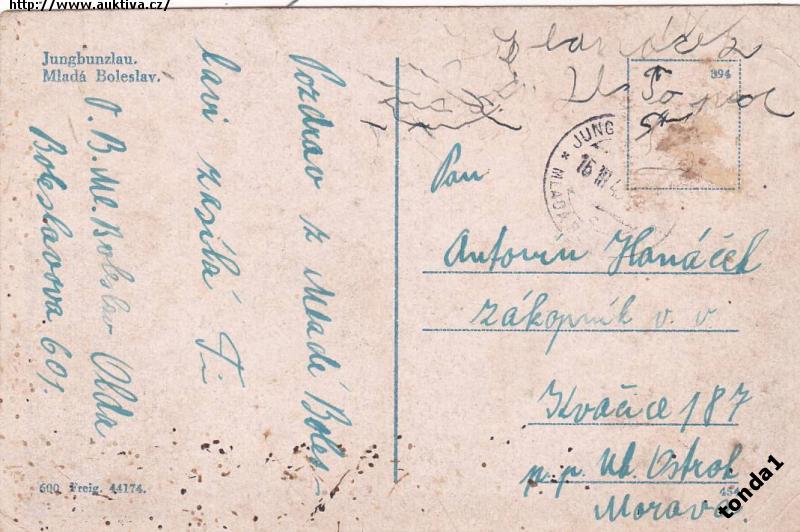 http://www.auktiva.cz/
Jungbunzlau.
Mladá Boleslav.
Pozdrav z Mladé Boles-
lavi zasílá Ti
Olda
O. B. Ml. Boleslav
Boleslavova 601.
600 Freig. 44174.
394
JUNG
15 III 4
MLADÁ B
Pan
Antonín Hanáček
zákopník v. v.
Kvačice 187
p. p. Uh. Ostroh
Morava.
454
tonda1